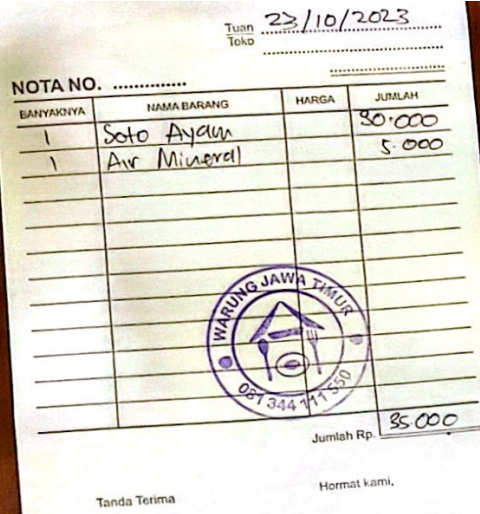 Tuan 23/10/2023
Toko
NOTA NO. ..............
BANYAKNYA NAMA BARANG HARGA JUMLAH
1 Soto Ayam 30.000
1 Air Mineral 5.000
WARUNG JAWA TIMUR
081 344 111 550
Jumlah Rp. 35.000
Tanda Terima Hormat kami,